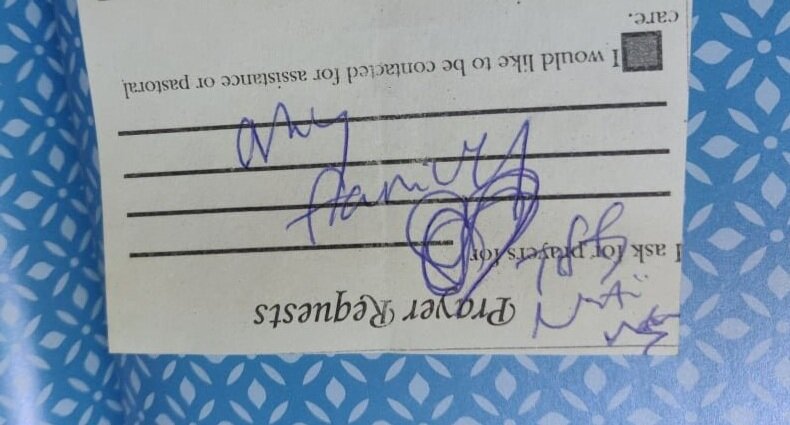 Prayer Requests
I ask for prayers for
Family
I would like to be contacted for assistance or pastoral
care.